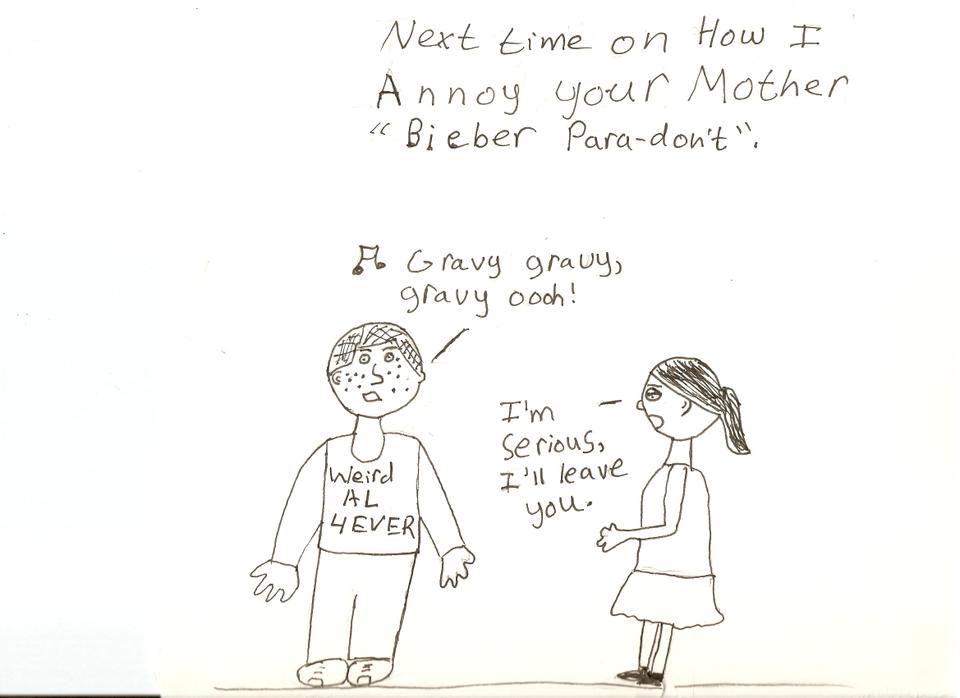 Next time on How I
Annoy your Mother
"Bieber Para-don't".
Gravy gravy,
gravy oooh!
I'm
serious,
I'll leave
you.
Weird
AL
4EVER